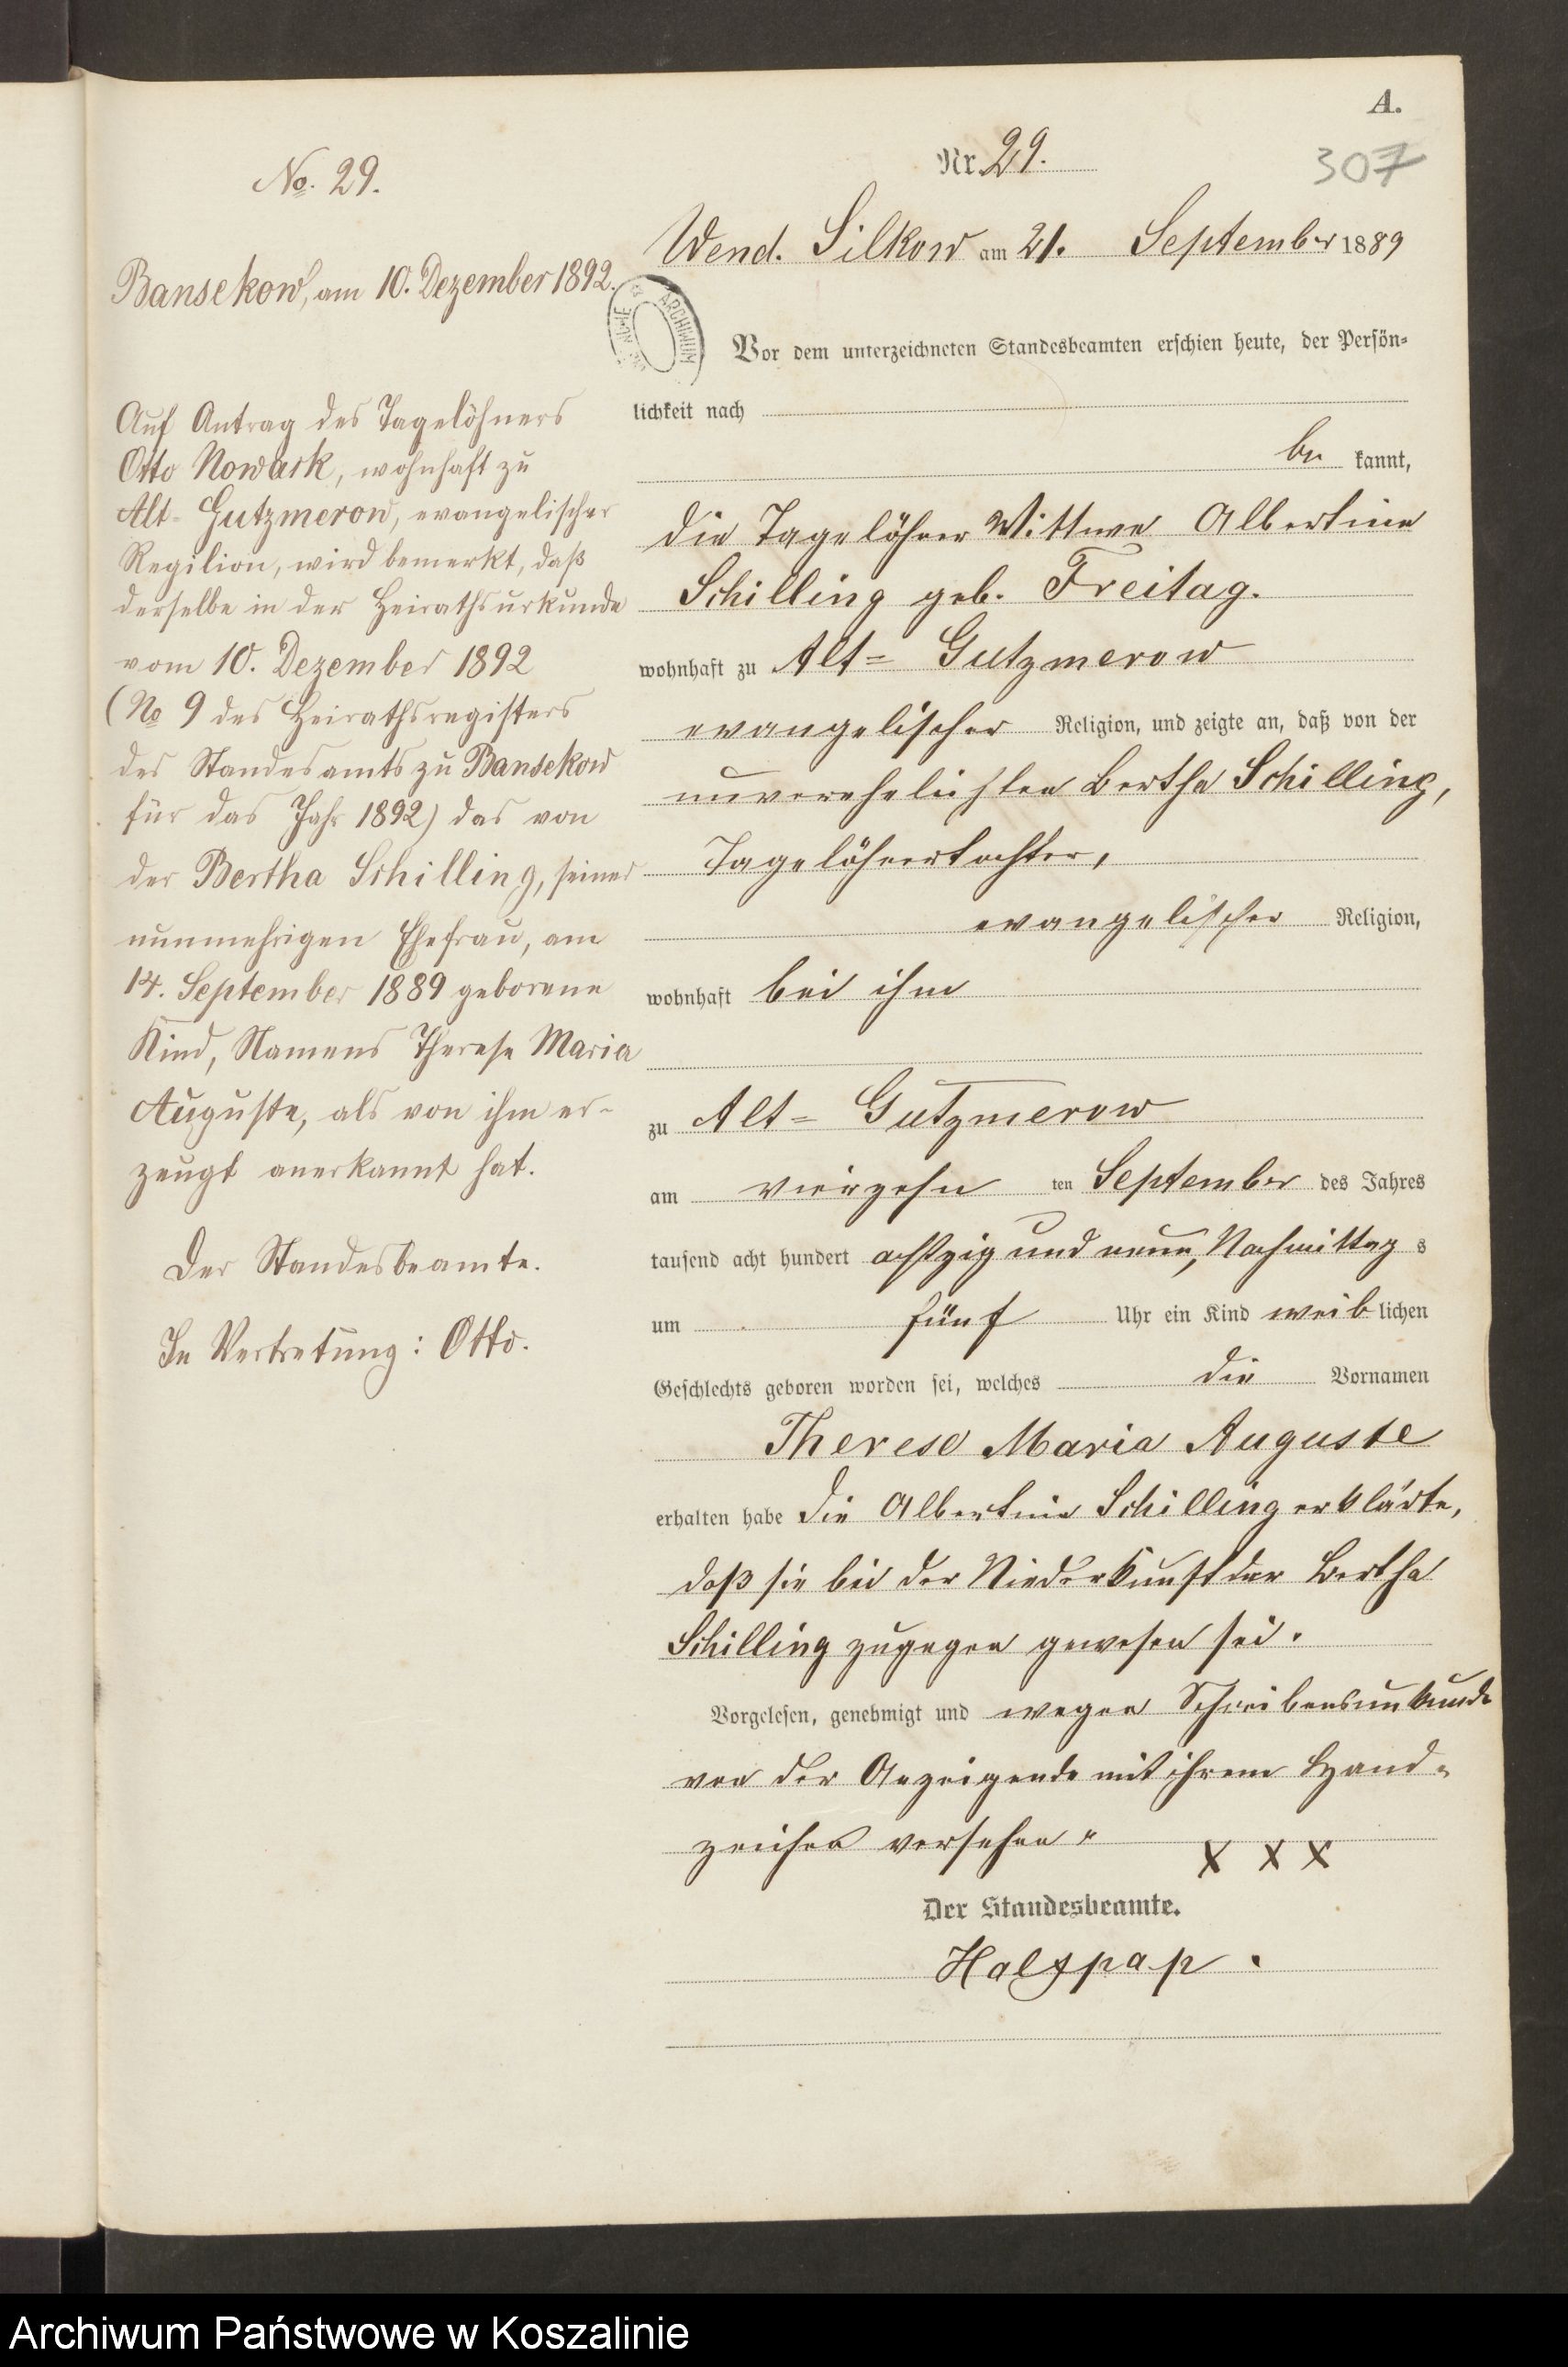 A.
307
No. 29.
Bansekow, am 10. Dezember 1892.
Auf Antrag des Tagelöhners
Otto Nowack, wohnhaft zu
Alt-Gutzmerow, evangelischer
Regilion, wird bemerkt, daß
derselbe in der Heirathsurkunde
vom 10. Dezember 1892
(No 9 des Heirathsregisters
des Standesamts zu Bansekow
für das Jahr 1892) das von
der Bertha Schilling, seiner
nunmehrigen Ehefrau, am
14. September 1889 geborene
Kind, Namens Therese Maria
Auguste, als von ihm er-
zeugt anerkannt hat.
Der Standesbeamte.
In Vertretung: Otto.
Nr. 29.
Wend. Silkow am 21. September 1889
ARCHIWUM
Vor dem unterzeichneten Standesbeamten erschien heute, der Persön-
lichkeit nach
be kannt,
die Tagelöhner Wittwe Albertine
Schilling geb. Freitag.
wohnhaft zu Alt-Gutzmerow
evangelischer Religion, und zeigte an, daß von der
unverehelichten Bertha Schilling,
Tagelöhnertochter,
evangelischer Religion,
wohnhaft bei ihm
zu Alt-Gutzmerow
am vierzehn ten September des Jahres
tausend acht hundert achtzig und neun, Nachmittag s
um fünf Uhr ein Kind weiblichen
Geschlechts geboren worden sei, welches die Vornamen
Therese Maria Auguste
erhalten habe die Albertine Schilling erklärte,
daß sie bei der Niederkunft der Bertha
Schilling zugegen gewesen sei.
Vorgelesen, genehmigt und wegen Schreibensunkunde
von der Anzeigende mit ihrem Hand-
zeichen versehen.
X X X
Der Standesbeamte.
Halfpap.
Archiwum Państwowe w Koszalinie